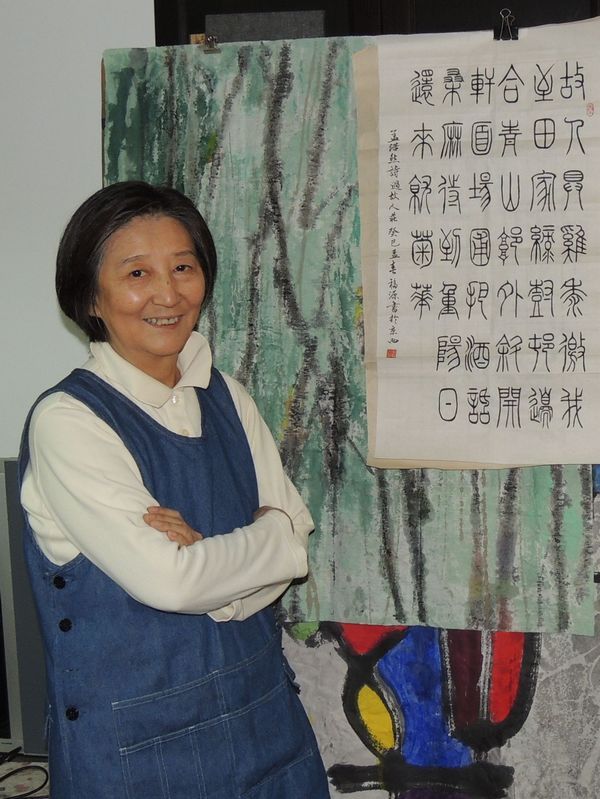 故人具雞黍邀我
至田家綠樹邨邊
合青山郭外斜開
軒面場圃把酒話
桑麻待到重陽日
還來就菊華
孟浩然詩過故人莊癸巳孟春福源書於京西